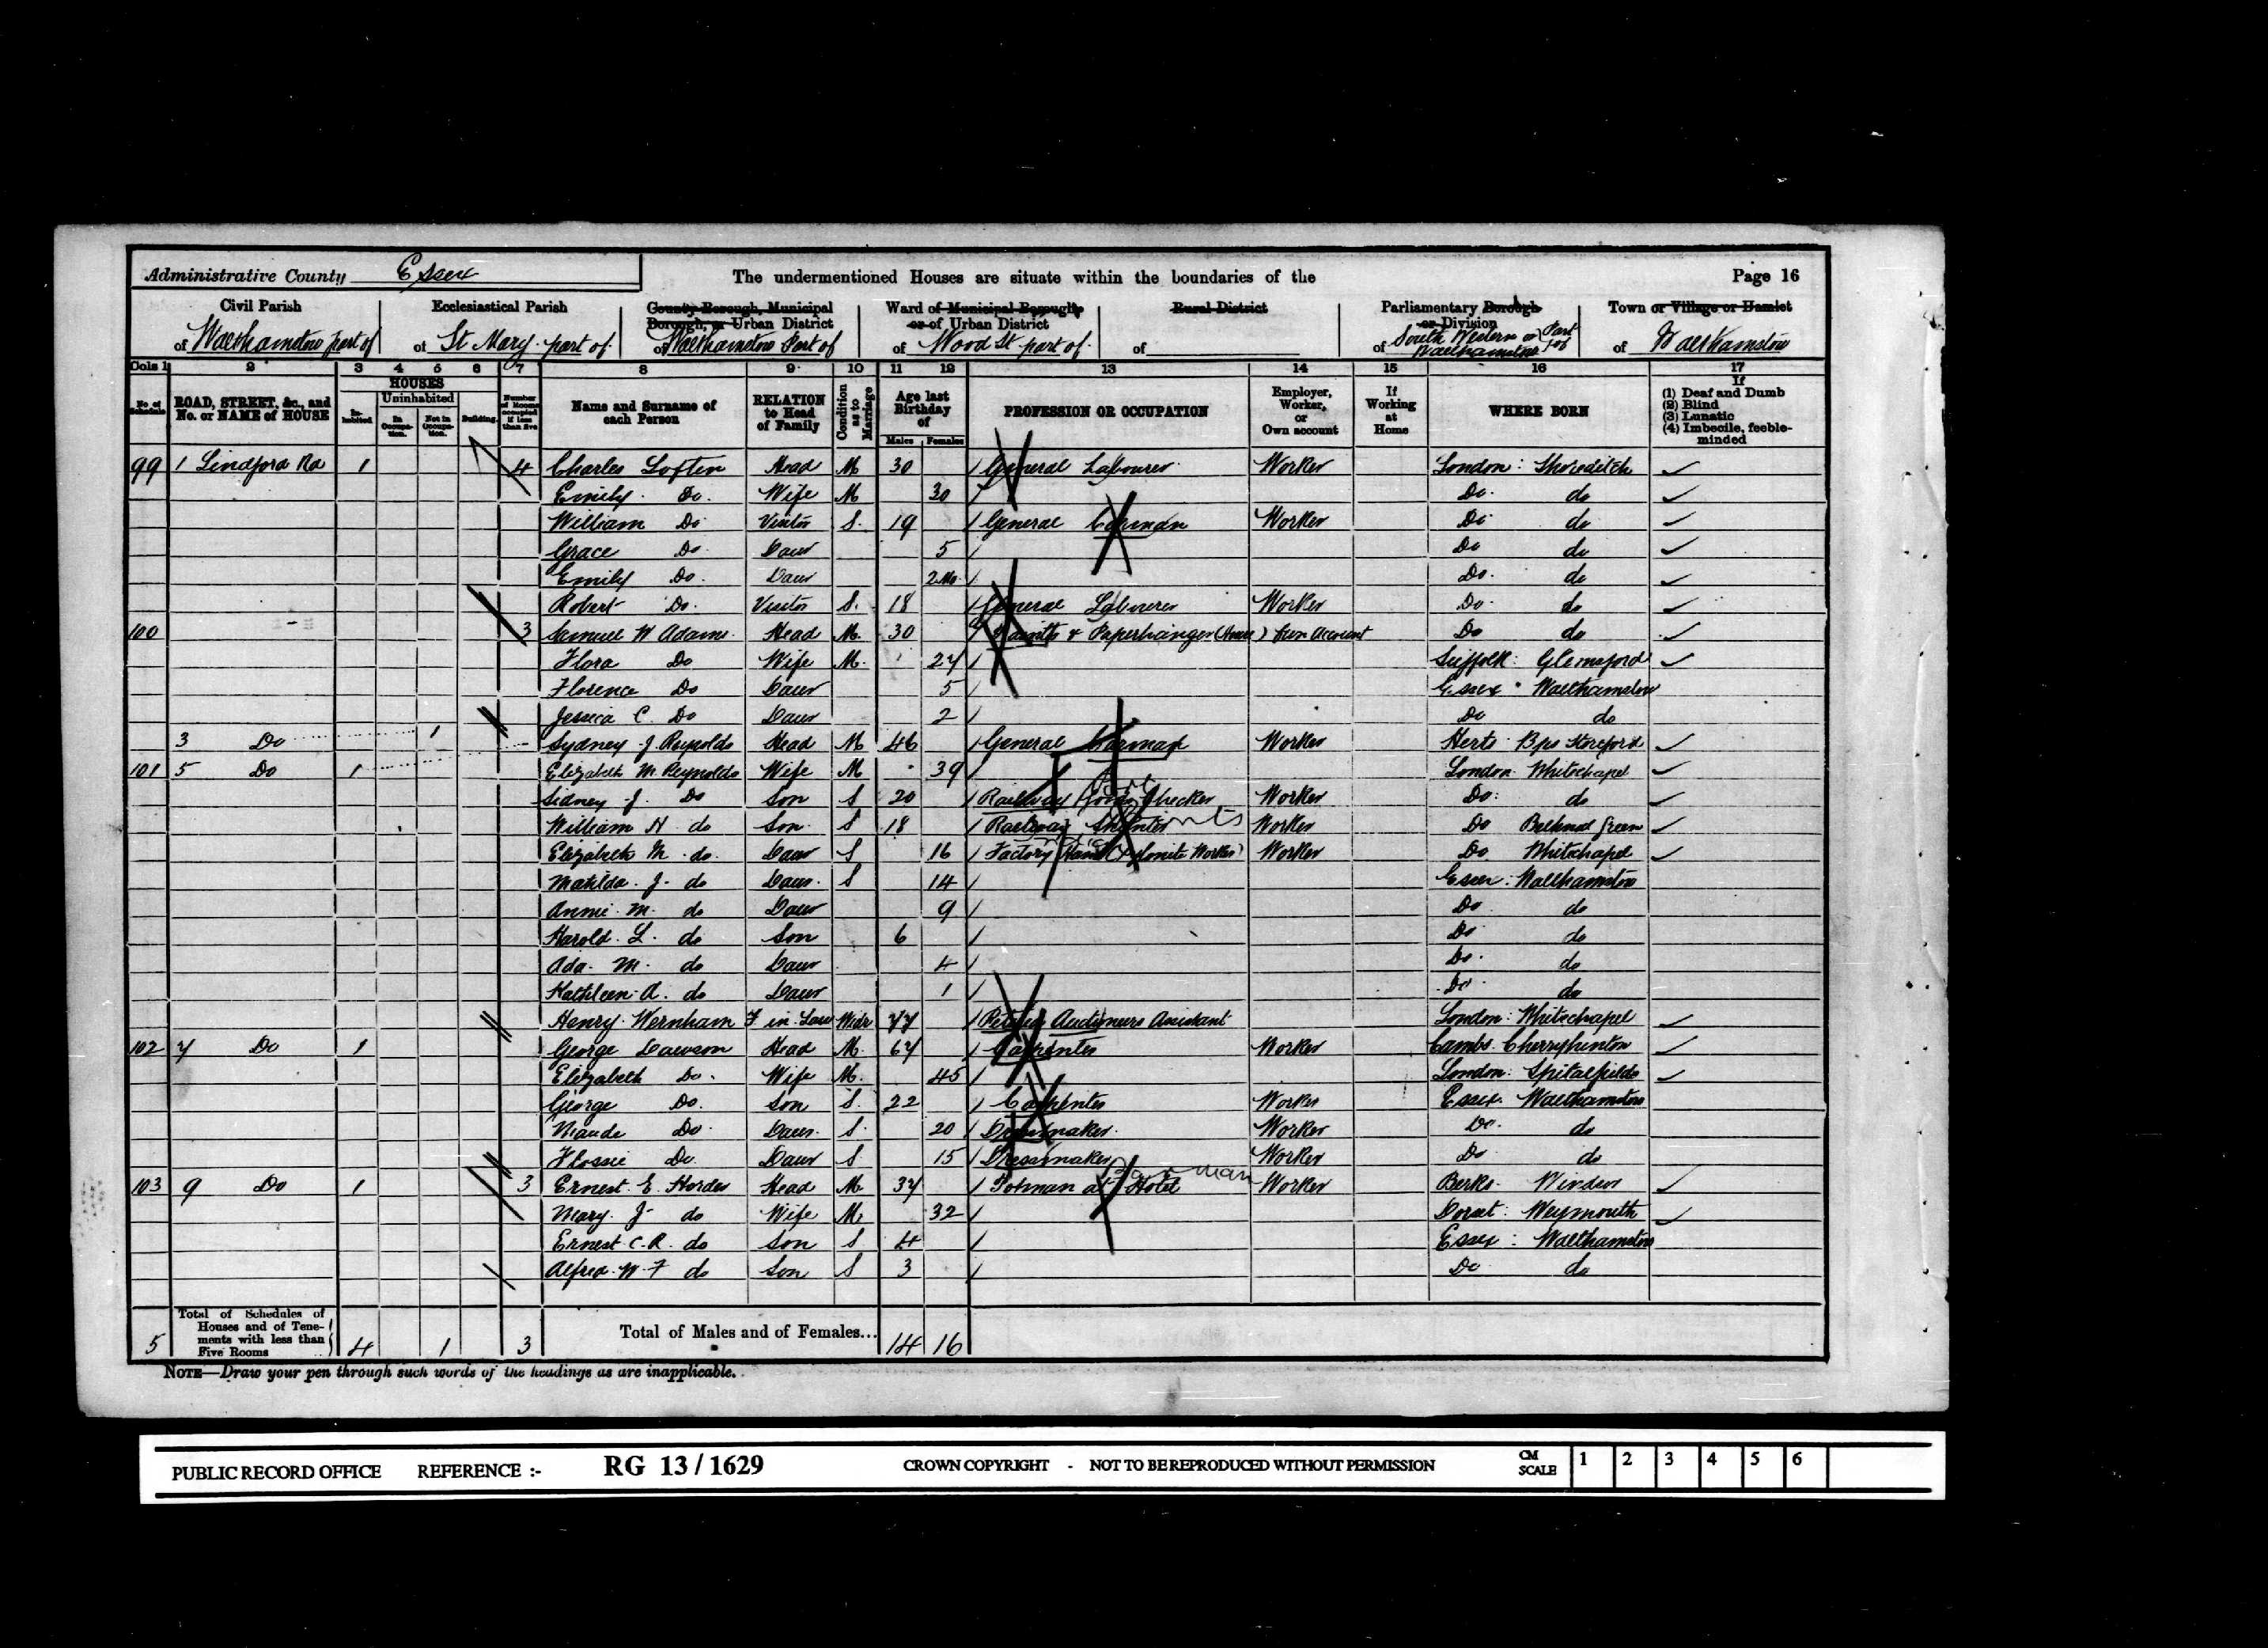 Administrative County Essex The undermentioned Houses are situate within the boundaries of the Page 16
Civil Parish Ecclesiastical Parish County Borough, Municipal Borough, or Urban District Ward of Municipal Borough or of Urban District Rural District Parliamentary Borough or Division Town or Village or Hamlet
of Walthamstow part of of St Mary part of of Walthamstow Part of of Wood St part of of of South Western or Walthamstow Part of of Walthamstow
Cols 1 2 3 4 5 6 7 8 9 10 11 12 13 14 15 16 17
No. of Schedule ROAD, STREET, &c., and No. or NAME of HOUSE HOUSES Inhabited Uninhabited In Occupation. Not in Occupation. Building. Number of Rooms occupied if less than five Name and Surname of each Person RELATION to Head of Family Condition as to Marriage Age last Birthday of Males Females PROFESSION OR OCCUPATION Employer, Worker, or Own account If Working at Home WHERE BORN If (1) Deaf and Dumb (2) Blind (3) Lunatic (4) Imbecile, feeble-minded
99 1 Lindford Rd 1 4 Charles Loften Head M 30 General Labourer Worker London: Shoreditch
Emily Do. Wife M 30 Do. do
William Do Visitor S. 19 General Carman Worker Do do
Grace Do Daur 5 Do do
Emily Do. Daur 2 Mo. Do. do
Robert Do. Visitor S. 18 General Labourer Worker Do. do
100 3 Samuel W Adams Head M. 30 & Paperhanger Own Account Do do
Flora Do Wife M. 27 Suffolk: Glemsford
Florence Do Daur 5 Essex Walthamstow
Jessica C. Do Daur 2 Do do
3 Do 1 Sydney J Reynolds Head M 46 General Carman Worker Herts Bps Stortford
101 5 Do 1 Elizabeth M. Reynolds Wife M 39 London Whitechapel
Sidney J. Do Son S 20 Railway Goods Checker Worker Do: do
William H do Son S 18 Railway Worker Do Bethnal Green
Elizabeth M. do. Daur S 16 Factory Hand Worker Do Whitechapel
Matilda. J. do Daur. S 14 Essex: Walthamstow
Annie. M. do Daur 9 Do do
Harold. L. do Son 6 Do do
Ada. M. do Daur 4 Do. do
Kathleen A. do Daur 1 Do do
Henry Wernham F in Law Widr 77 Retired Auctioneers Assistant London: Whitechapel
102 7 Do 1 George Dawson Head M. 67 Carpenter Worker Cambs. Cherryhinton
Elizabeth Do. Wife M. 45 London: Spitalfields
George Do. Son S. 22 Carpenter Worker Essex Walthamstow
Maude Do Daur. S. 20 Dressmaker. Worker Do. do
Flossie Do. Daur S 15 Dressmaker Worker Do do
103 9 Do 1 3 Ernest. E. Hordes Head M. 37 Potman at Hotel Barman Worker Berks. Windsor
Mary. J do Wife M. 32 Dorset: Weymouth
Ernest C. R. do Son S 4 Essex: Walthamstow
Alfred. W. F do Son S 3 Do do
5 Total of Schedules of Houses and of Tenements with less than Five Rooms 4 1 3 Total of Males and of Females... 14 16
NOTE—Draw your pen through such words of the headings as are inapplicable.
PUBLIC RECORD OFFICE REFERENCE :- RG 13 / 1629 CROWN COPYRIGHT - NOT TO BE REPRODUCED WITHOUT PERMISSION CM SCALE 1 2 3 4 5 6